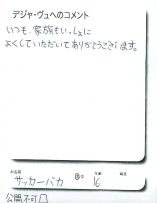 デジャ・ヴュへのコメント
いつも、家族もいっしょに
よくしていただいてありがとうございます。
お名前 サッカーバカ 男・女 年齢 16 職業
公開不可□